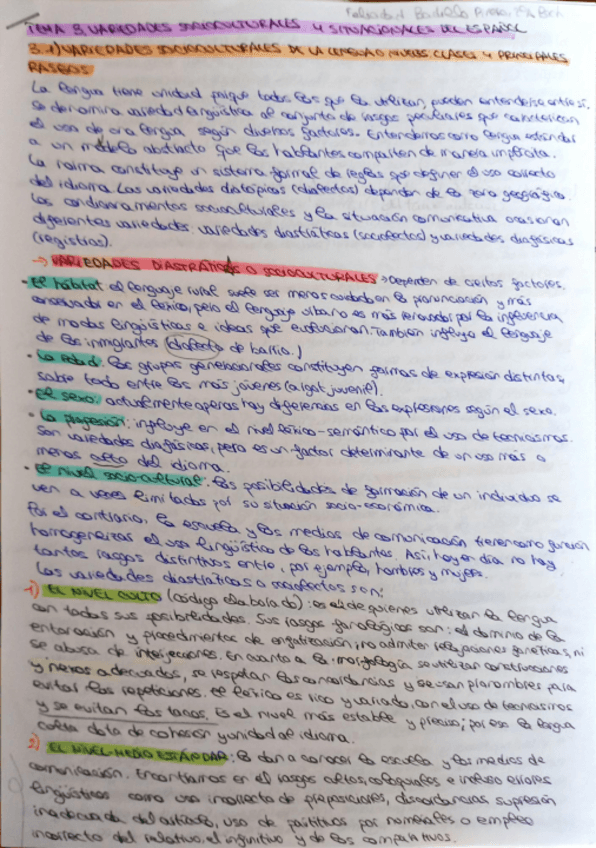 TEMA 3. VARIEDADES SOCIOCULTURALES Y SITUACIONALES DEL ESPAÑOL
3.1) VARIEDADES SOCIOCULTURALES DE LA LENGUA O NIVELES. CLASES Y PRINCIPALES
RASGOS
La lengua tiene unidad porque todos los que la utilizan pueden entenderse entre sí.
Se denomina variedad lingüística al conjunto de rasgos peculiares que caracterizan
el uso de una lengua según diversos factores. Entendemos como lengua estándar
a un modelo abstracto que los hablantes comparten de manera implícita.
La norma constituye un sistema formal de reglas que definen el uso correcto
del idioma. Las variedades diatópicas (dialectos) dependen de la zona geográfica.
Los condicionamientos socioculturales y la situación comunicativa ocasionan
diferentes variedades: variedades diastráticas (sociolectos) y variedades diafásicas
(registros).
→ VARIEDADES DIASTRÁTICAS O SOCIOCULTURALES → Dependen de ciertos factores.
· El hábitat: el lenguaje rural suele ser menos cuidado en la pronunciación y más
conservador en el léxico, pero el lenguaje urbano es más renovado por la influencia
de modas lingüísticas e ideas que evolucionan. También influye el lenguaje
de los inmigrantes (dialecto de barrio.)
· La edad: los grupos generacionales constituyen formas de expresión distintas,
sobre todo entre los más jóvenes (argot juvenil).
· El sexo: actualmente apenas hay diferencias en las expresiones según el sexo.
· La profesión: influye en el nivel léxico-semántico por el uso de tecnicismos.
Son variedades diafásicas, pero es un factor determinante de un uso más o
menos culto del idioma.
· El nivel socio-cultural: las posibilidades de formación de un individuo se
ven a veces limitadas por su situación socio-económica.
Por el contrario, la escuela y los medios de comunicación tienen como función
homogeneizar el uso lingüístico de los hablantes. Así, hoy en día no hay
tantos rasgos distintivos entre, por ejemplo, hombres y mujeres.
Las variedades diastráticas o sociolectos son:
1) EL NIVEL CULTO (código elaborado): es el de quienes utilizan la lengua
con todas sus posibilidades. Sus rasgos fonológicos son: el dominio de la
entonación y procedimientos de enfatización; no admiten relajaciones fonéticas, ni
se abusa de interjecciones. En cuanto a la morfología se utilizan construcciones
y nexos adecuados, se respetan las concordancias y se usan pronombres para
evitar las repeticiones. El léxico es rico y variado, con el uso de tecnicismos
y se evitan los tacos. Es el nivel más estable y preciso; por eso la lengua
culta dota de cohesión y unidad al idioma.
2) EL NIVEL MEDIO ESTÁNDAR: la dan a conocer la escuela y los medios de
comunicación. Encontramos en él rasgos cultos, coloquiales e incluso errores
lingüísticos como uso incorrecto de preposiciones, discordancias, supresión
inadecuada del artículo, uso de partitivos por nominales o empleo
incorrecto del relativo, el infinitivo y de los comparativos.